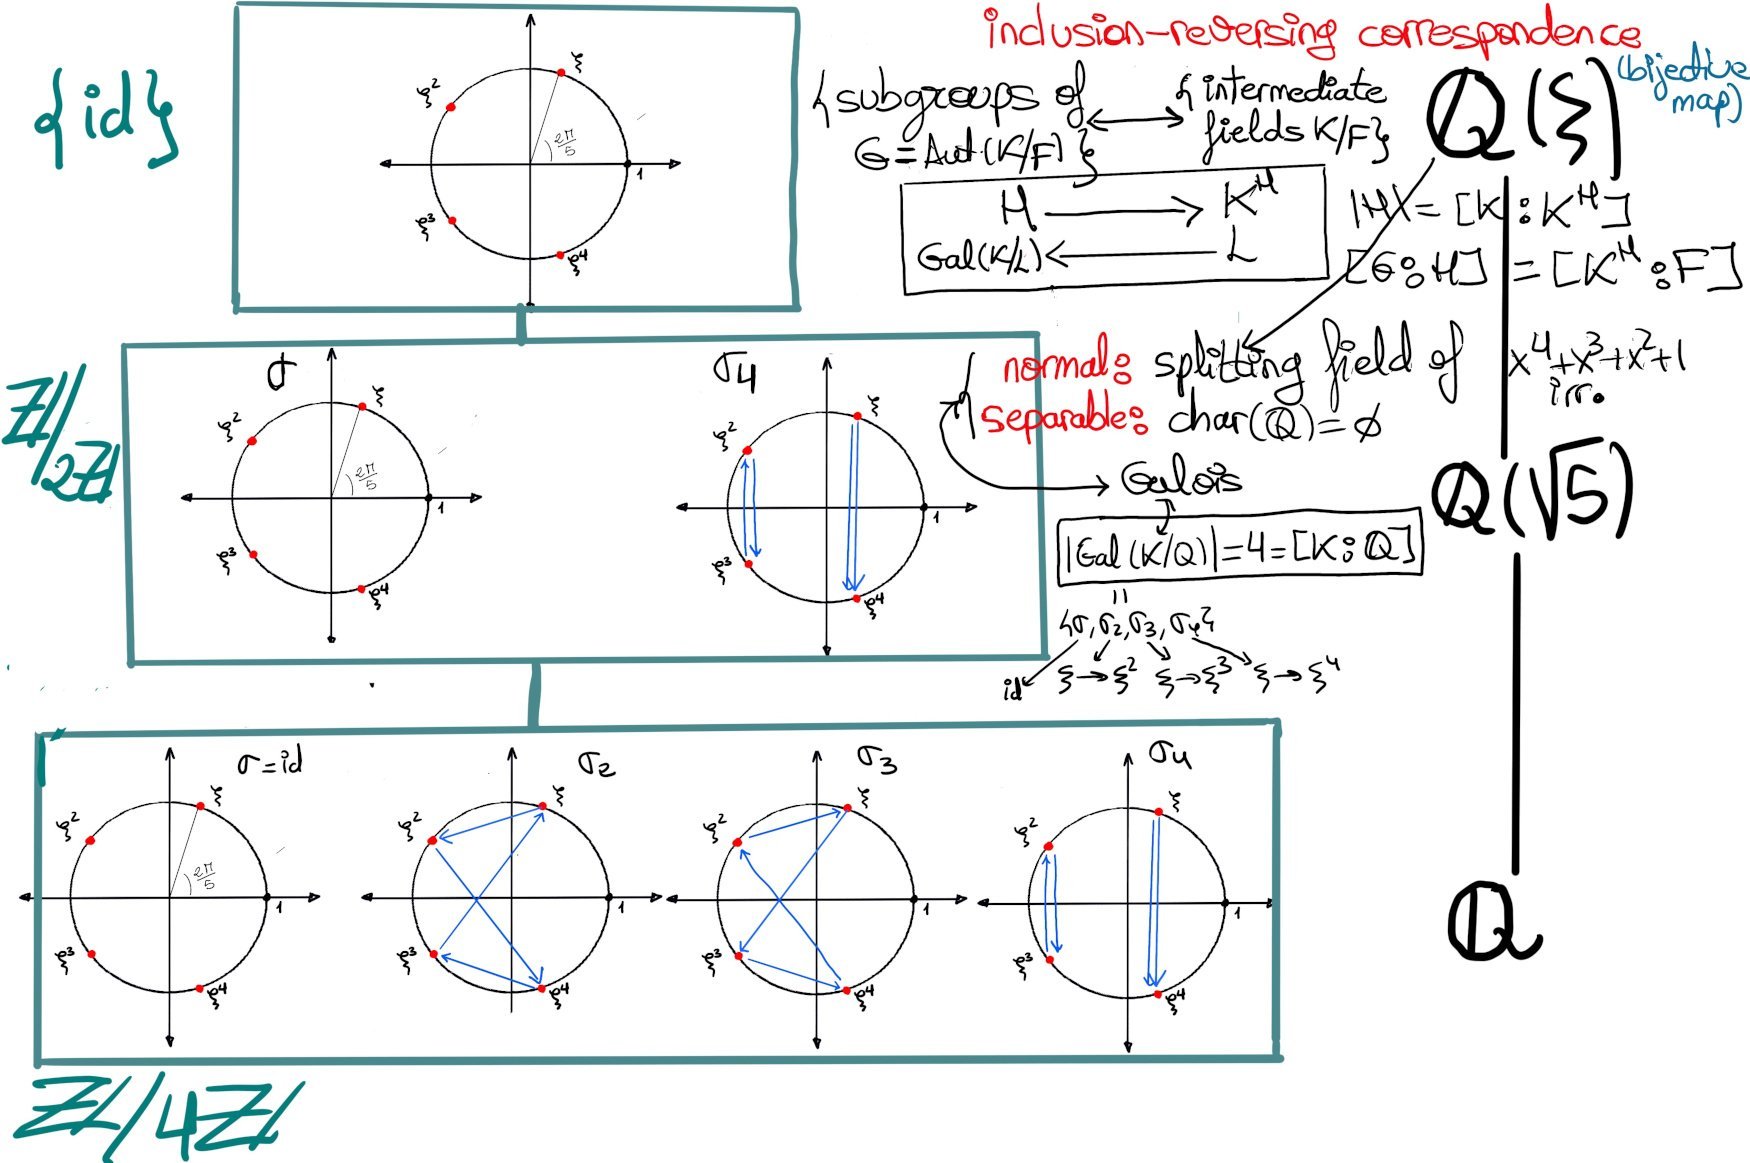 inclusion-reversing correspondence
(bijective
map)
{id}
ξ
ξ²
2π/5
1
ξ³
ξ⁴
{subgroups of
G = Aut(K/F)}
{intermediate
fields K/F}
Q(ξ)
H → K^H
Gal(K/L) ← L
|H| = [K:K^H]
[G:H] = [K^H:F]
Z/2Z
σ
ξ
ξ²
2π/5
1
ξ³
ξ⁴
σ4
ξ
ξ²
1
ξ³
ξ⁴
normal: splitting field of x⁴+x³+x²+1
irr.
separable: char(Q)=∅
Galois
|Gal(K/Q)|=4=[K:Q]
"
{σ, σ2, σ3, σ4}
id ξ→ξ² ξ→ξ³ ξ→ξ⁴
Q(√5)
σ=id
ξ
ξ²
2π/5
1
ξ³
ξ⁴
σ2
ξ
ξ²
1
ξ³
ξ⁴
σ3
ξ
ξ²
1
ξ³
ξ⁴
σ4
ξ
ξ²
1
ξ³
ξ⁴
Q
Z/4Z